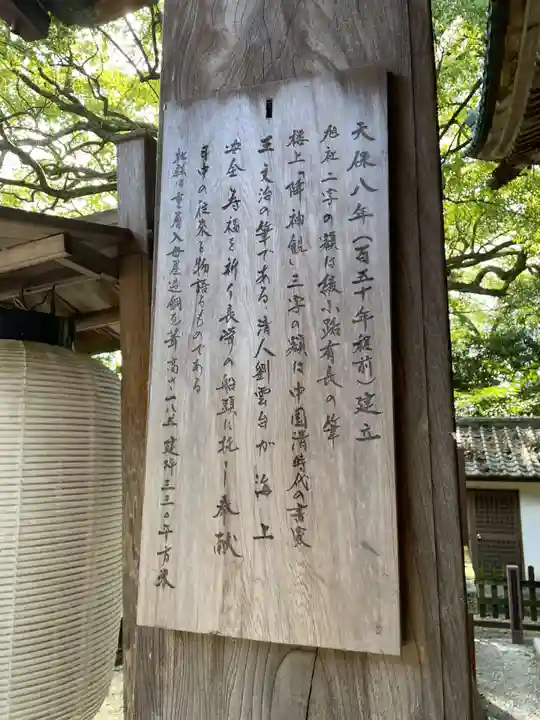 天保八年（百五十年程前）建立
旭社二字の額は綾小路有長の筆
楼上「降神観」三字の額は中国清時代の書家
王文治の筆である 清人劉雲台が海上
安全寿福を祈り長濱の船頭に托し奉献
日中の往来を物語るものである
社殿は重層入母屋造銅瓦葺 高さ一八米 建坪三三〇平方米